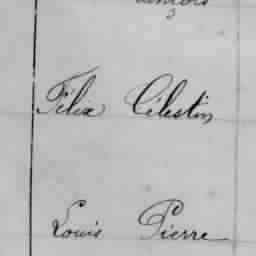 Félix Célestin
Louis Pierre